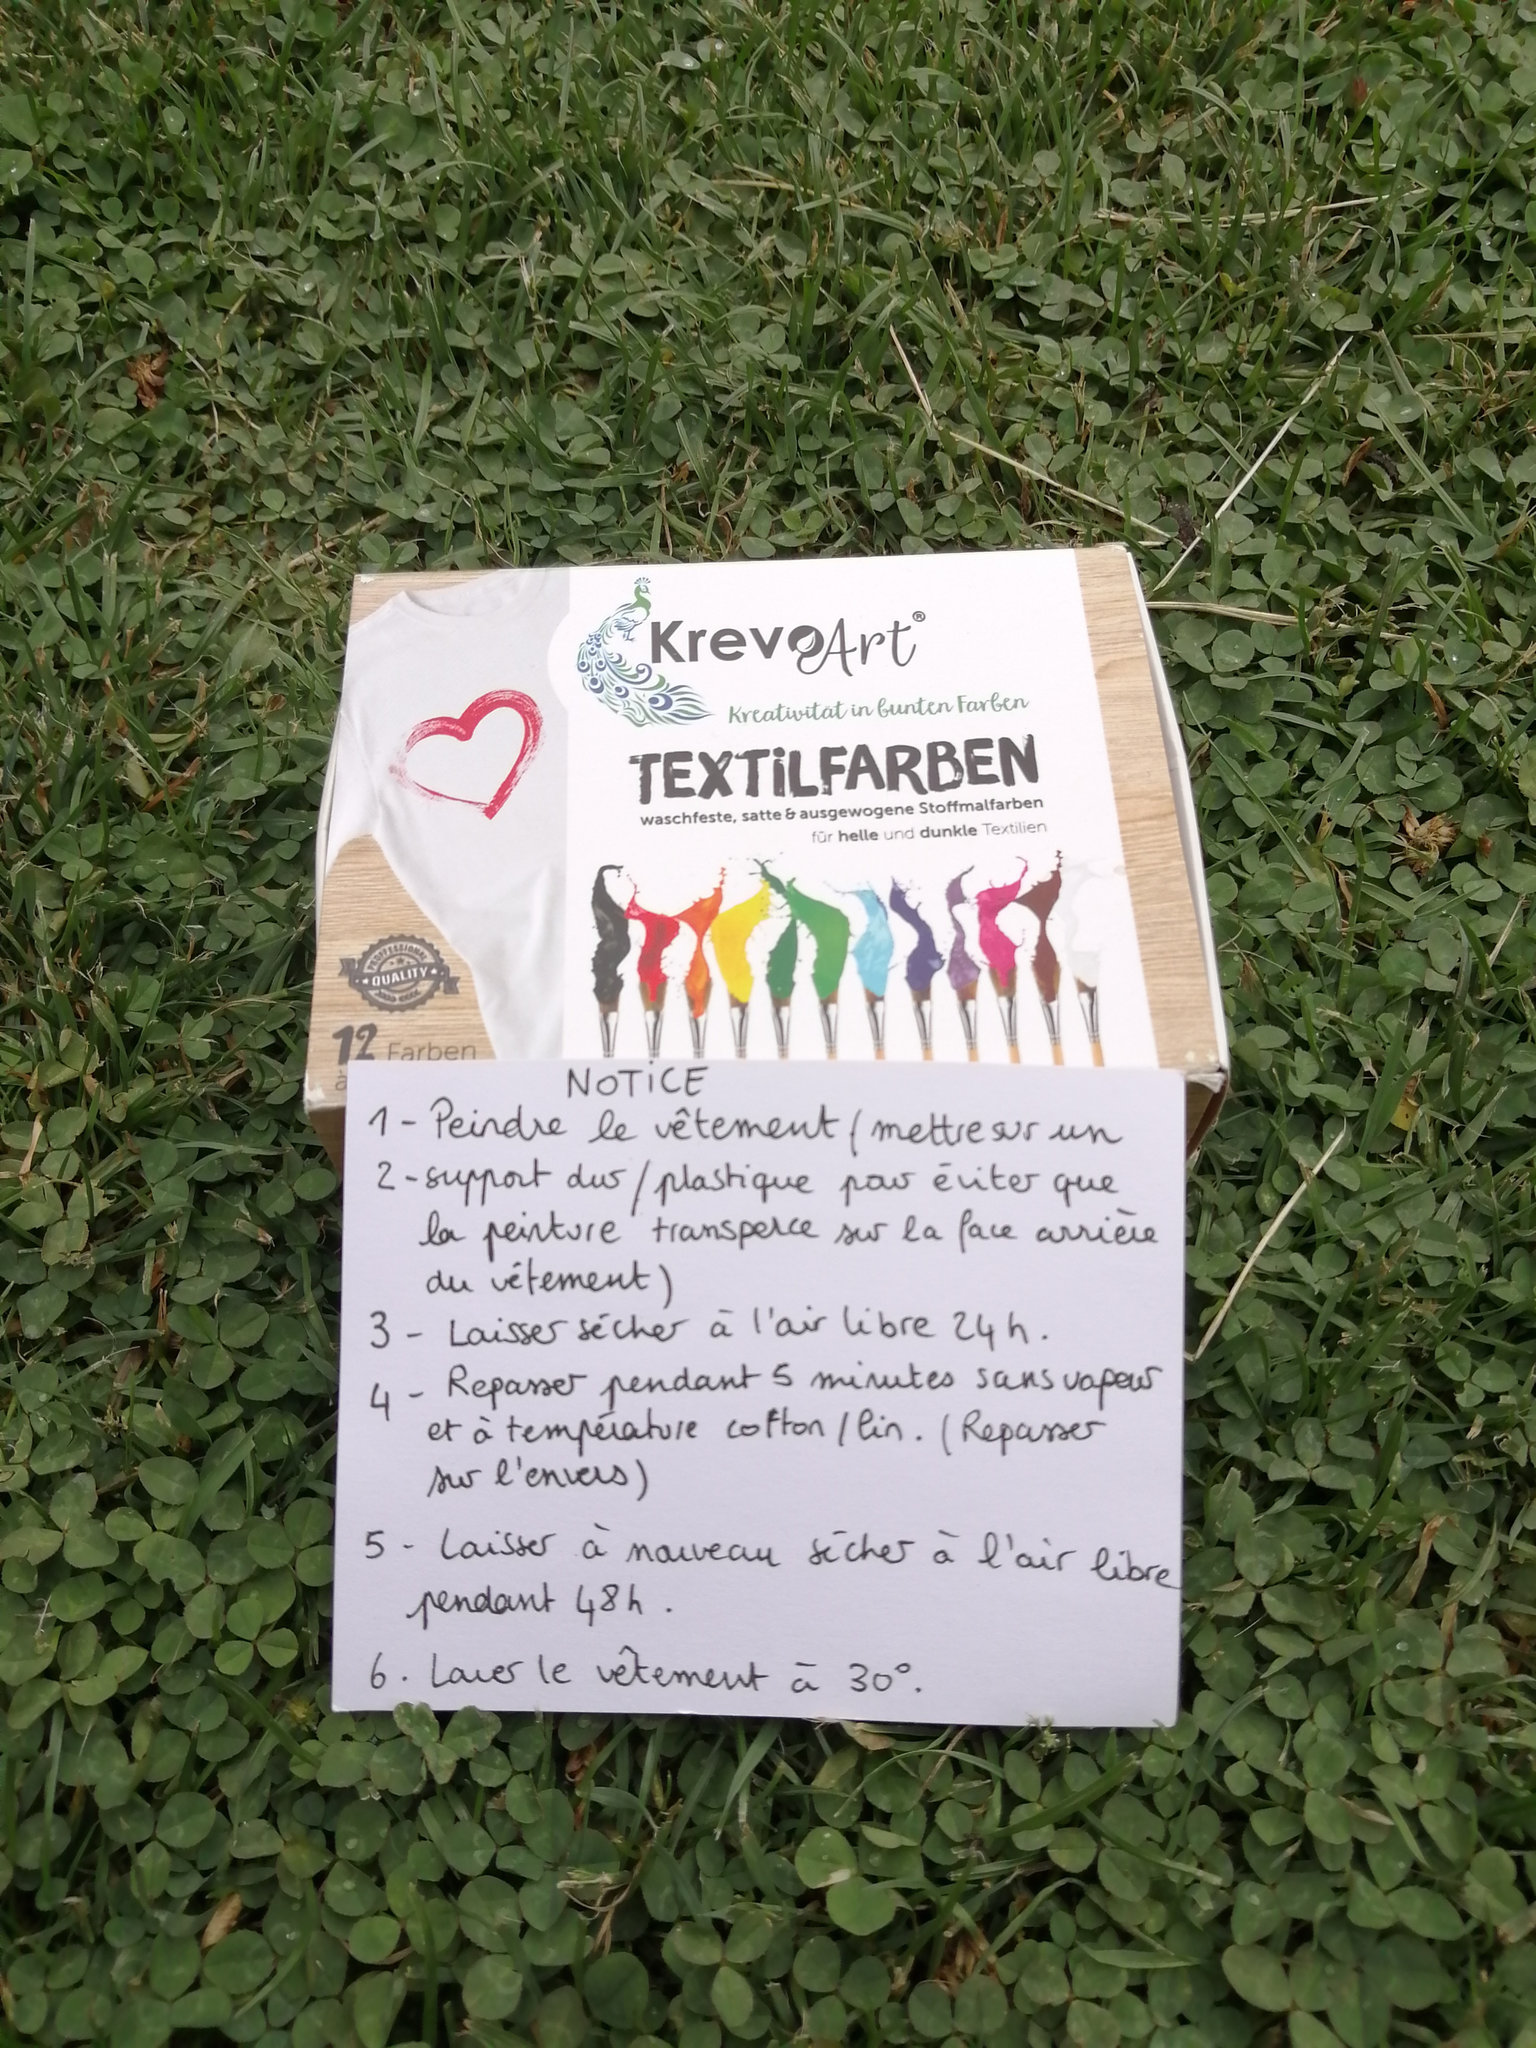 KrevoArt®
Kreativität in bunten Farben
TEXTiLFARBEN
waschfeste, satte & ausgewogene Stoffmalfarben
für helle und dunkle Textilien
PROFESSIONAL
QUALITY
12 Farben
à
NOTICE
1 - Peindre le vêtement (mettre sur un
2 - support dur / plastique pour éviter que
la peinture transperce sur la face arrière
du vêtement)
3 - Laisser sécher à l'air libre 24h.
4 - Repasser pendant 5 minutes sans vapeur
et à température cotton / lin. (Repasser
sur l'envers)
5 - Laisser à nouveau sécher à l'air libre
pendant 48h.
6. Laver le vêtement à 30°.